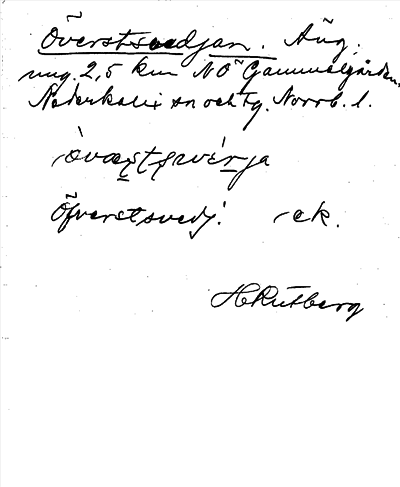 Överstsvedjan. Äng.
ung. 2,5 km NÖ Gammelgården.
Nederkalix sn och tg. Norrb. l.
òvæʂtʂwérja
Öfverstsvedj. ek.
H Rutberg